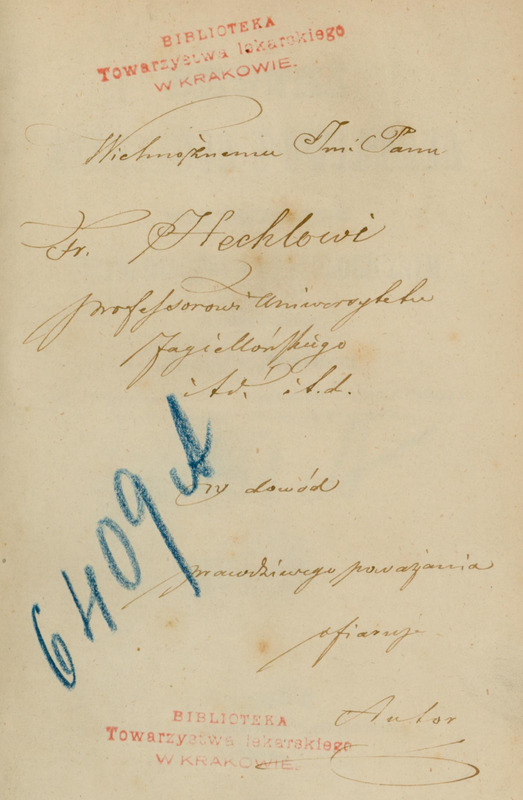 BIBLIOTEKA
Towarzystwa lekarskiego
W KRAKOWIE.
Wielmożnemu Jmi Panu
Fr. Hechlowi
professorowi Uniwersytetu
Jagiellońskiego
i t.d. i t.d.
w dowód
prawdziwego poważania
ofiaruje
Autor
6409
BIBLIOTEKA
Towarzystwa lekarskiego
W KRAKOWIE.